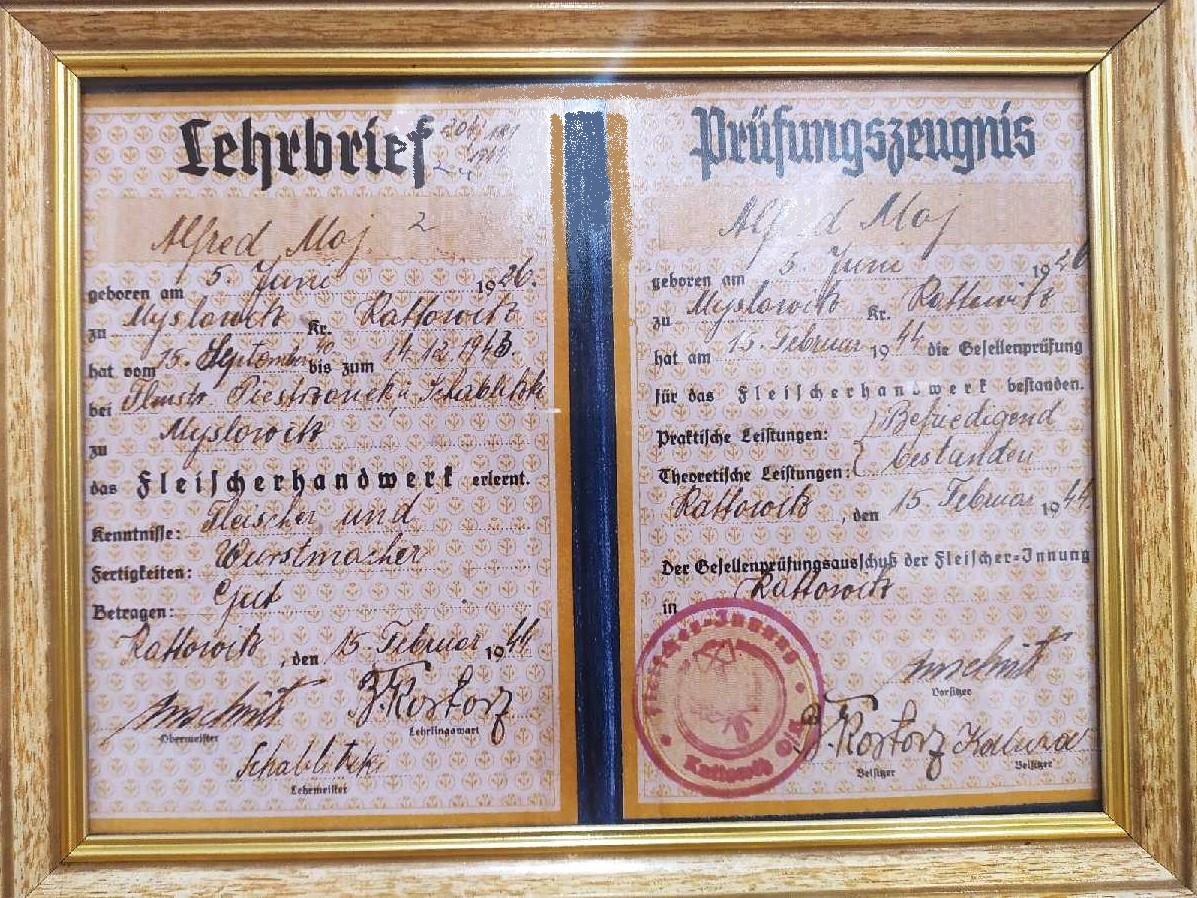 Lehrbrief
Alfred Moj 2
geboren am 5. Juni 1926.
zu Myslowitz Kr. Kattowitz
hat vom 15. September 40 bis zum 14.12.1943.
bei Flmstr. Schablitzki
zu Myslowitz
das Fleischerhandwerk erlernt.
Kenntnisse: Fleischer und
Fertigkeiten: Wurstmacher
Betragen: Gut
Kattowitz, den 15. Februar 1944
Obermeister
F. Kostorz
Lehrlingswart
Schablitzki
Lehrmeister
Prüfungszeugnis
Alfred Moj
geboren am 5. Juni 1926
zu Myslowitz Kr. Kattowitz
hat am 15. Februar 1944 die Gesellenprüfung
für das Fleischerhandwerk bestanden.
Praktische Leistungen: } Befriedigend
Theoretische Leistungen: { bestanden
Kattowitz, den 15. Februar 1944.
Der Gesellenprüfungsausschuß der Fleischer-Innung
in Kattowitz
Fleischer-Innung
Kattowitz O/S
Vorsitzer
F. Kostorz Kaluza
Beisitzer Beisitzer